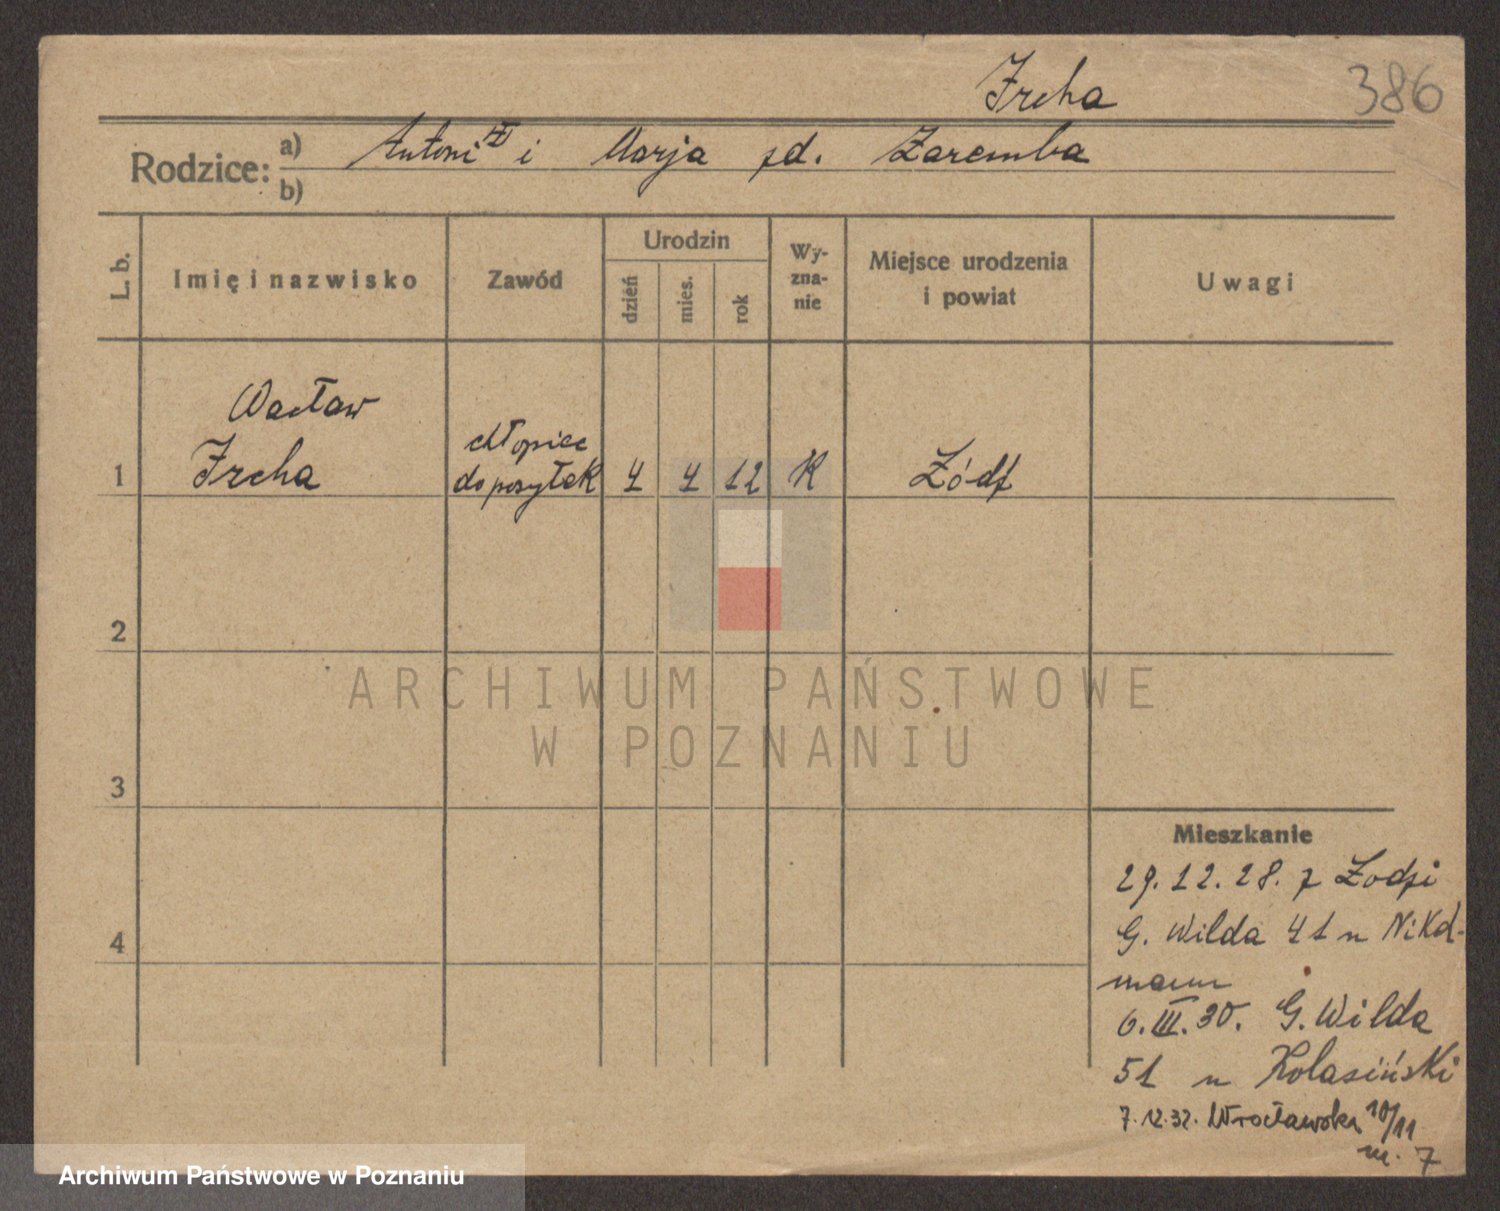 Ircha 386
Rodzice: a) Antoni i Marja zd. Zaremba
b)
L. b. Imię i nazwisko Zawód Urodzin dzień mies. rok Wy-zna-nie Miejsce urodzenia i powiat Uwagi
Wacław
1 Ircha chłopiec
do posyłek 4 4 12 K Łódź
2
ARCHIWUM PAŃSTWOWE
W POZNANIU
3
Mieszkanie
29.12.28. z Łodzi
4 G. Wilda 41 u
mann
6.III.30. G. Wilda
51 u Kolasiński
7.12.32. Wrocławska 10/11
m. 7
Archiwum Państwowe w Poznaniu